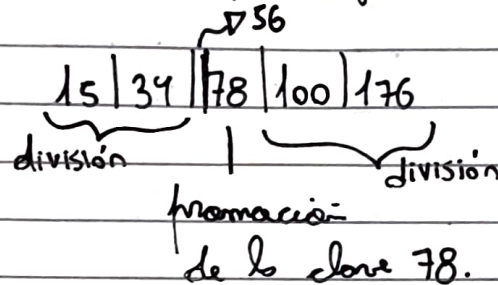 56
15 | 34 || 78 | 100 | 176
división división
promoción
de la clave 78.